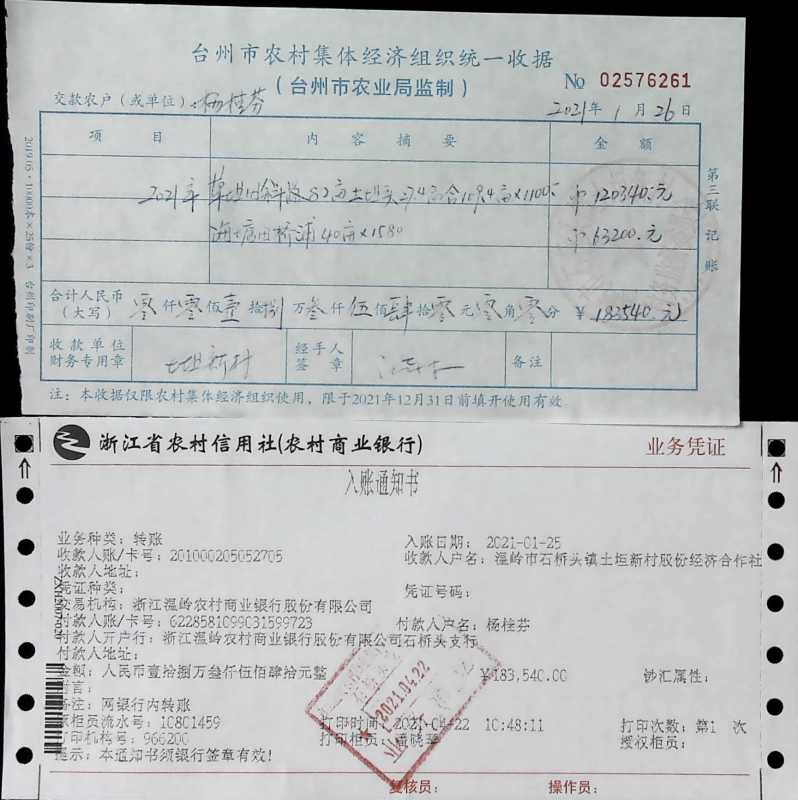 台州市农村集体经济组织统一收据
(台州市农业局监制)
No 02576261
交款农户(或单位):杨桂芬
2021年1月26日
项目 内容摘要 金额
2021年 82亩土坦头27.4亩合109.4亩×1100 120340.元
海塘田桥浦40亩×1580 63200.元
合计人民币(大写) 零仟零佰壹拾捌万叁仟伍佰肆拾零元零角零分 ¥183540.元
收款单位财务专用章 土坦新村 经手人签章 备注
注:本收据仅限农村集体经济组织使用,限于2021年12月31日前填开使用有效
第三联 记账
浙江省农村信用社(农村商业银行)
业务凭证
入账通知书
业务种类:转账 入账日期:2021-01-25
收款人账/卡号:201000205052705 收款人户名:温岭市石桥头镇土坦新村股份经济合作社
收款人地址:
凭证种类: 凭证号码:
交易机构:浙江温岭农村商业银行股份有限公司
付款人账/卡号:6228581099031599723 付款人户名:杨桂芬
付款人开户行:浙江温岭农村商业银行股份有限公司石桥头支行
付款人地址:
金额:人民币壹拾捌万叁仟伍佰肆拾元整 ¥183,540.00 钞汇属性:
附言:
备注:网银行内转账
原柜员流水号:10801459 打印时间:2021-04-22 10:48:11 打印次数:第1 次
打印机构号:966200 打印柜员:潘晓 授权柜员:
提示:本通知书须银行签章有效!
2021.04.22
复核员: 操作员: